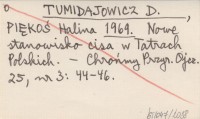 o TUMIDAJOWICZ D.,
PIĘKOŚ Halina 1969. Nowe
stanowisko cisa w Tatrach
Polskich. - Chrońmy Przyr. Ojcz.
25, nr 3: 44-46.